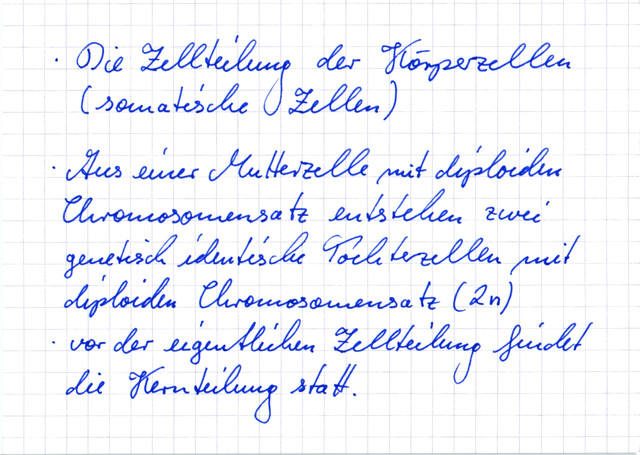 · Die Zellteilung der Körperzellen
(somatische Zellen)
· Aus einer Mutterzelle mit diploiden
Chromosomensatz entstehen zwei
genetisch identische Tochterzellen mit
diploiden Chromosomensatz (2n)
· vor der eigentlichen Zellteilung findet
die Kernteilung statt.